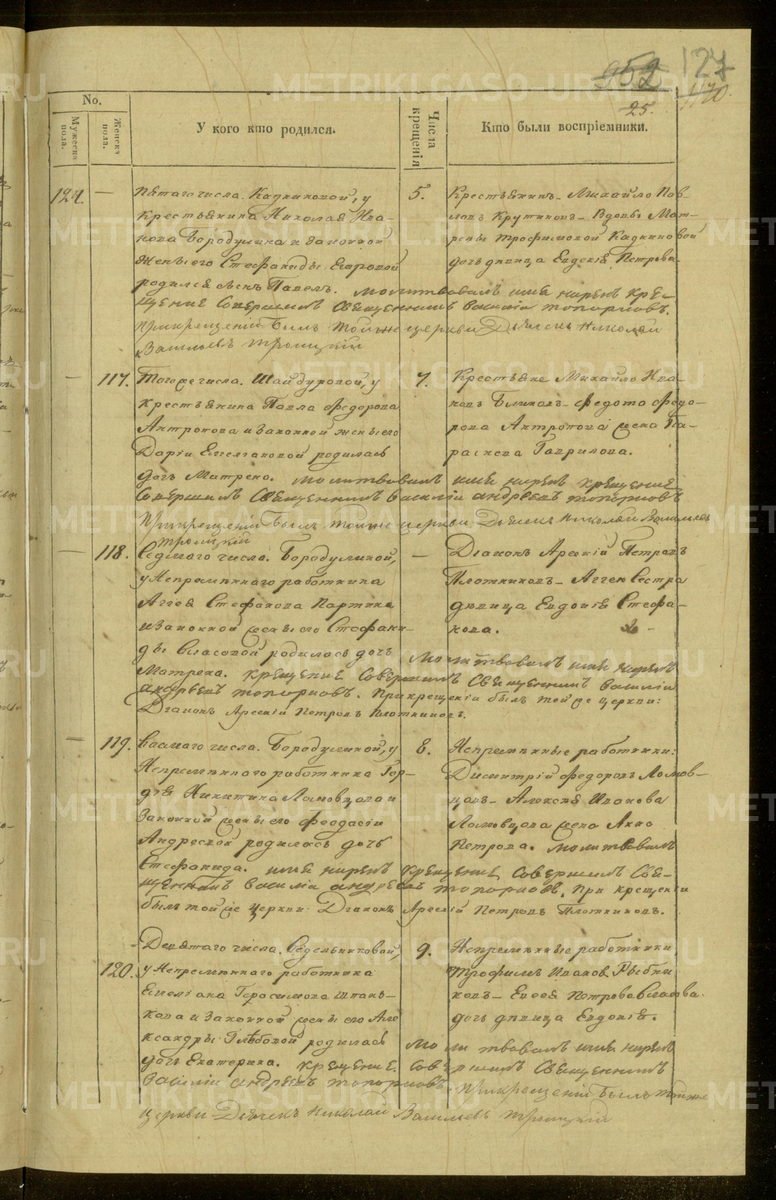 952 127
25.
No.
Мужеска пола.
Женска пола.
У кого кто родился.
Числа крещенія
Кто были воспріемники.
124. — Пятаго числа. Кадниковой, у
Крестьянина Николая Ива-
нова Бородулина и законной
жены его Стефаниды Егоровой
родился сынъ Павелъ. Молитвовалъ имя нарекъ кре-
щеніе совершилъ Священникъ Василій Топорковъ.
При крещеніи былъ тойже церкви Дьячекъ Николай
Васильевъ Троицкій
5. Крестьянинъ Михайло Пав-
ловъ Крутиковъ — Вдовы Мат-
рены Трофимовой Кадниковой
дочь дѣвица Евдокія Петрова
— 117. Тогоже числа. Шайдуровой, у
Крестьянина Павла Федорова
Антропова и законной жены его
Дарьи Емельяновой родилась
дочь Матрена. Молитвовалъ имя нарекъ крещеніе
совершилъ Священникъ Василій Андреевъ Топорковъ
При крещеніи былъ тойже церкви Дьячекъ Николай Васильевъ
Троицкій
7. Крестьяне Михайло Ива-
новъ — Федота Федо-
рова Антропова жена Па-
раскева Гаврилова.
— 118. Седмаго числа. Бородулиной,
у Непремѣннаго работника
Аггея Стефанова Партина
и законной жены его Стефани-
ды Власовой родилась дочь
Матрена. Молитвовалъ имя нарекъ
крещеніе совершилъ Священникъ Василій
Андреевъ Топорковъ. При крещеніи былъ тойже церкви:
Діаконъ Арсеній Петровъ Плотниковъ.
— Діаконъ Арсеній Петровъ
Плотниковъ — Аггея сестра
дѣвица Евдокія Стефа-
нова.
— 119. Восмаго числа. Бородулиной, у
Непремѣннаго работника Гор-
дѣя Никитина Ломовцова и
законной жены его Феодосіи
Андреевой родилась дочь
Стефанида. имя нарекъ крещеніе совершилъ Свя-
щенникъ Василій Андреевъ Топорковъ. При крещеніи
былъ тойже церкви: Діаконъ Арсеній Петровъ Плотниковъ.
8. Непремѣнные работники:
Димитрій Федоровъ Ломов-
цовъ — Алексѣя Иванова
Ломовцова жена Анна
Петрова. Молитвовалъ
120. Девятаго числа. Седельниковой,
у Непремѣннаго работника
Емеліана Герасимова
и законной жены его Але-
ксандры Глѣбовой родилась
дочь Екатерина. Молитвовалъ имя нарекъ
крещеніе совершилъ Священникъ
Василій Андреевъ Топорковъ При крещеніи былъ тойже
церкви Дьячекъ Николай Васильевъ Троицкій
9. Непремѣнные работники
Трофимъ Ивановъ Рыбни-
ковъ — Евсея Петрова
дочь дѣвица Евдокія.
METRIKI.GASO-URAL.RU